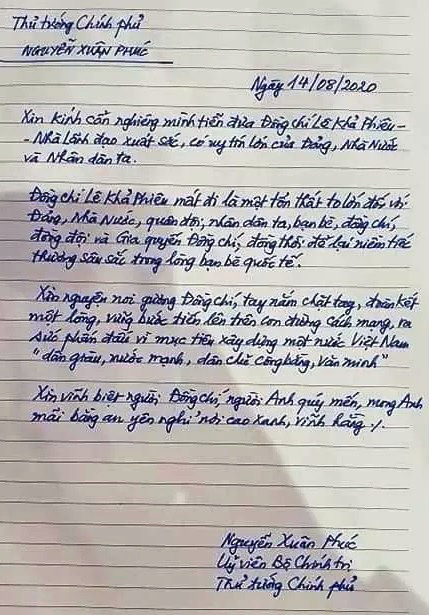 Thủ tướng Chính phủ
NGUYỄN XUÂN PHÚC
Ngày 14/08/2020
Xin kính cẩn nghiêng mình tiễn đưa Đồng chí Lê Khả Phiêu-
- Nhà lãnh đạo xuất sắc, có uy tín lớn của Đảng, Nhà Nước
và Nhân dân ta.
Đồng chí Lê Khả Phiêu mất đi là một tổn thất to lớn đối với
Đảng, Nhà Nước, quân đội, nhân dân ta, bạn bè, đồng chí,
đồng đội và Gia quyến Đồng chí, đồng thời để lại niềm tiếc
thương sâu sắc trong lòng bạn bè quốc tế.
Xin nguyện noi gương Đồng chí, tay nắm chặt tay, đoàn kết
một lòng, vững bước tiến lên trên con đường cách mạng, ra
sức phấn đấu vì mục tiêu xây dựng một nước Việt Nam
"dân giàu, nước mạnh, dân chủ công bằng, văn minh"
Xin vĩnh biệt người Đồng chí, người Anh quý mến, mong Anh
mãi bằng an yên nghỉ nơi cao xanh, vĩnh hằng ./.
Nguyễn Xuân Phúc
Uỷ viên Bộ Chính trị
Thủ tướng Chính phủ